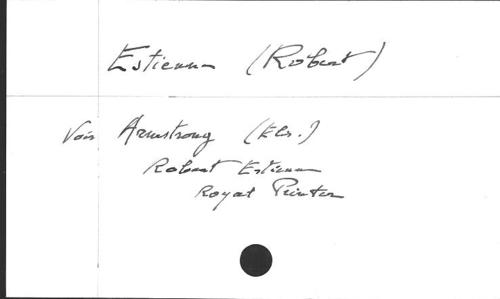 Estienne (Robert)
Voir Armstrong (Eliz.)
Robert Estienne
Royal Printer